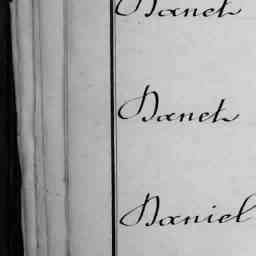 Danet
Danet
Daniel